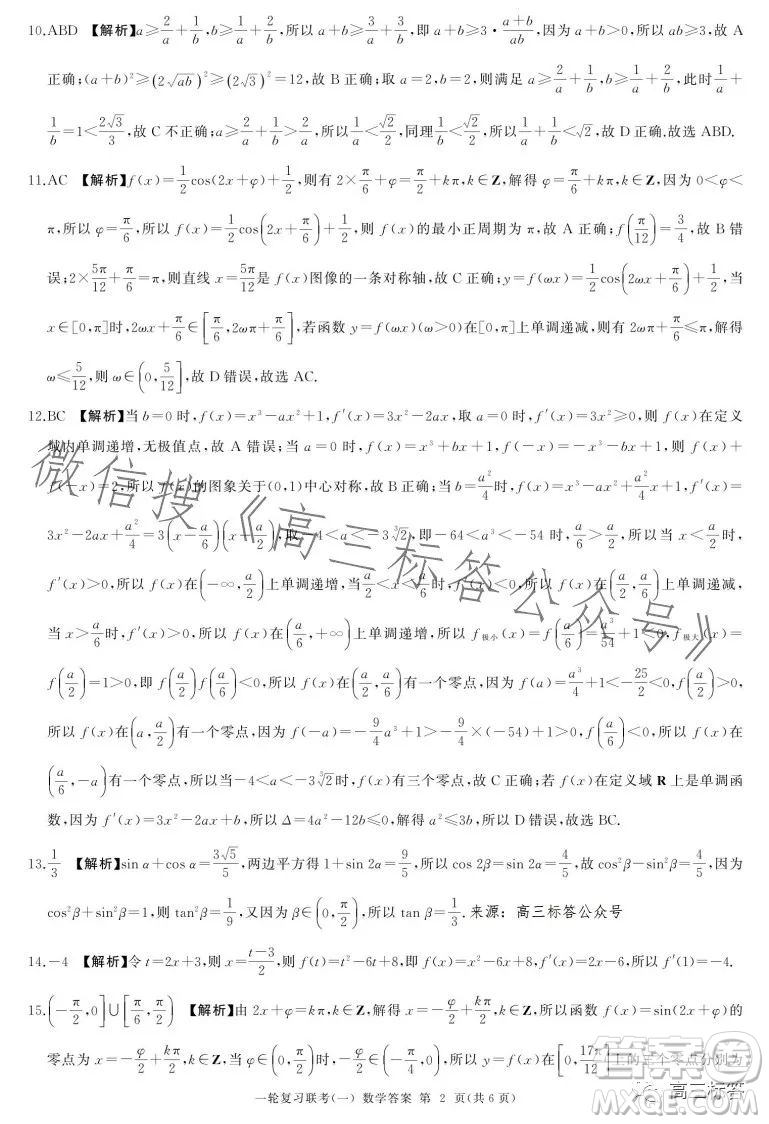 10.ABD 【解析】a≥2/a+1/b,b≥1/a+2/b,所以 a+b≥3/a+3/b,即 a+b≥3·(a+b)/(ab),因为 a+b>0,所以 ab≥3,故 A
正确;(a+b)²≥(2√(ab))²≥(2√3)²=12,故 B 正确;取 a=2,b=2,则满足 a≥2/a+1/b,b≥1/a+2/b,此时1/a+
1/b=1<2√3/3,故 C 不正确;a≥2/a+1/b>2/a,所以1/a<√2/2,同理1/b<√2/2,所以1/a+1/b<√2,故 D 正确.故选 ABD.
11.AC 【解析】f(x)=1/2cos(2x+φ)+1/2,则有 2×π/6+φ=π/2+kπ,k∈Z,解得 φ=π/6+kπ,k∈Z,因为 0<φ<
π,所以 φ=π/6,所以 f(x)=1/2cos(2x+π/6)+1/2,则 f(x)的最小正周期为 π,故 A 正确;f(π/12)=3/4,故 B 错
误;2×5π/12+π/6=π,则直线 x=5π/12是 f(x)图像的一条对称轴,故 C 正确;y=f(ωx)=1/2cos(2ωx+π/6)+1/2,当
x∈[0,π]时,2ωx+π/6∈[π/6,2ωπ+π/6],若函数 y=f(ωx)(ω>0)在[0,π]上单调递减,则有 2ωπ+π/6≤π,解得
ω≤5/12,则 ω∈(0,5/12],故 D 错误,故选 AC.
12.BC 【解析】当 b=0 时,f(x)=x³-ax²+1,f′(x)=3x²-2ax,取 a=0 时,f′(x)=3x²≥0,则 f(x)在定义
域内单调递增,无极值点,故 A 错误;当 a=0 时,f(x)=x³+bx+1,f(-x)=-x³-bx+1,则 f(x)+
f(-x)=2,所以 f(x)的图象关于(0,1)中心对称,故 B 正确;当 b=a²/4时,f(x)=x³-ax²+a²/4x+1,f′(x)=
3x²-2ax+a²/4=3(x-a/6)(x-a/2),取-4<a<-3∛2,即-64<a³<-54 时,a/6>a/2,所以当 x<a/2时,
f′(x)>0,所以 f(x)在(-∞,a/2)上单调递增,当a/2<x<a/6时,f′(x)<0,所以 f(x)在(a/2,a/6)上单调递减,
当 x>a/6时,f′(x)>0,所以 f(x)在(a/6,+∞)上单调递增,所以 f极小(x)=f(a/6)=a³/54+1<0,f极大(x)=
f(a/2)=1>0,即 f(a/2)f(a/6)<0,所以 f(x)在(a/2,a/6)有一个零点,因为 f(a)=a³/4+1<-25/2<0,f(a/2)>0,
所以 f(x)在(a,a/2)有一个零点,因为 f(-a)=-9/4a³+1>-9/4×(-54)+1>0,f(a/6)<0,所以 f(x)在
(a/6,-a)有一个零点,所以当-4<a<-3∛2时,f(x)有三个零点,故 C 正确;若 f(x)在定义域 R 上是单调函
数,因为 f′(x)=3x²-2ax+b,所以 Δ=4a²-12b≤0,解得 a²≤3b,所以 D 错误,故选 BC.
13.1/3 【解析】sin α+cos α=3√5/5,两边平方得 1+sin 2α=9/5,所以 cos 2β=sin 2α=4/5,故 cos²β-sin²β=4/5,因为
cos²β+sin²β=1,则 tan²β=1/9,又因为 β∈(0,π/2),所以 tan β=1/3.来源：高三标答公众号
14.-4 【解析】令 t=2x+3,则 x=(t-3)/2,则 f(t)=t²-6t+8,即 f(x)=x²-6x+8,f′(x)=2x-6,所以 f′(1)=-4.
15.(-π/2,0]∪[π/6,π/2) 【解析】由 2x+φ=kπ,解得 x=-φ/2+kπ/2,k∈Z,所以函数 f(x)=sin(2x+φ)的
零点为 x=-φ/2+kπ/2,k∈Z,当 φ∈(0,π/2)时,-φ/2∈(-π/4,0),所以 y=f(x)在[0,17π/12]上的三个零点分别为
一轮复习联考(一) 数学答案 第 2 页(共 6 页)
微信搜《高三标答公众号》
答案圈
高三标答